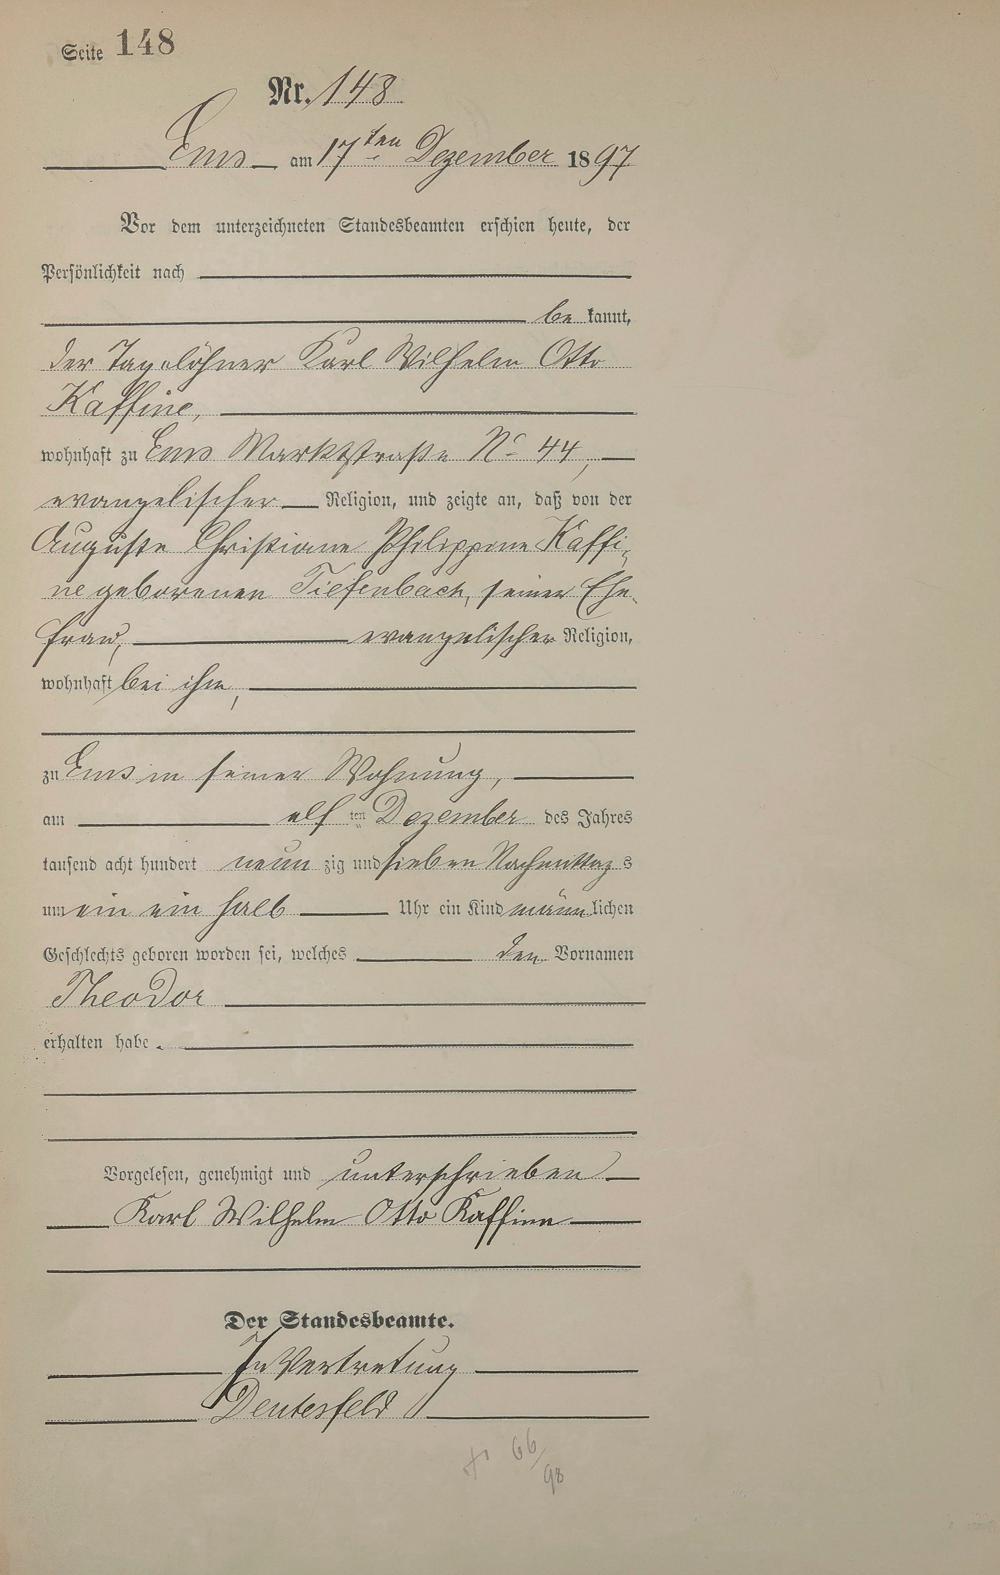 Seite 148
Nr. 148
Ems am 17ten Dezember 1897
Vor dem unterzeichneten Standesbeamten erschien heute, der
Persönlichkeit nach
be kannt,
der Tagelöhner Karl Wilhelm Otto
Kaffine,
wohnhaft zu Ems Marktstraße No 44,
evangelischer Religion, und zeigte an, daß von der
Auguste Christiane Philippine Kaffi-
ne geborenen Tiefenbach, seiner Ehe-
frau, evangelischer Religion,
wohnhaft bei ihm,
zu Ems in seiner Wohnung,
am elf ten Dezember des Jahres
tausend acht hundert neun zig und sieben Nachmittag s
um ein ein halb Uhr ein Kind männ lichen
Geschlechts geboren worden sei, welches den Vornamen
Theodor
erhalten habe.
Vorgelesen, genehmigt und unterschrieben
Karl Wilhelm Otto Kaffine
Der Standesbeamte.
In Vertretung
Deutesfeld
66/98